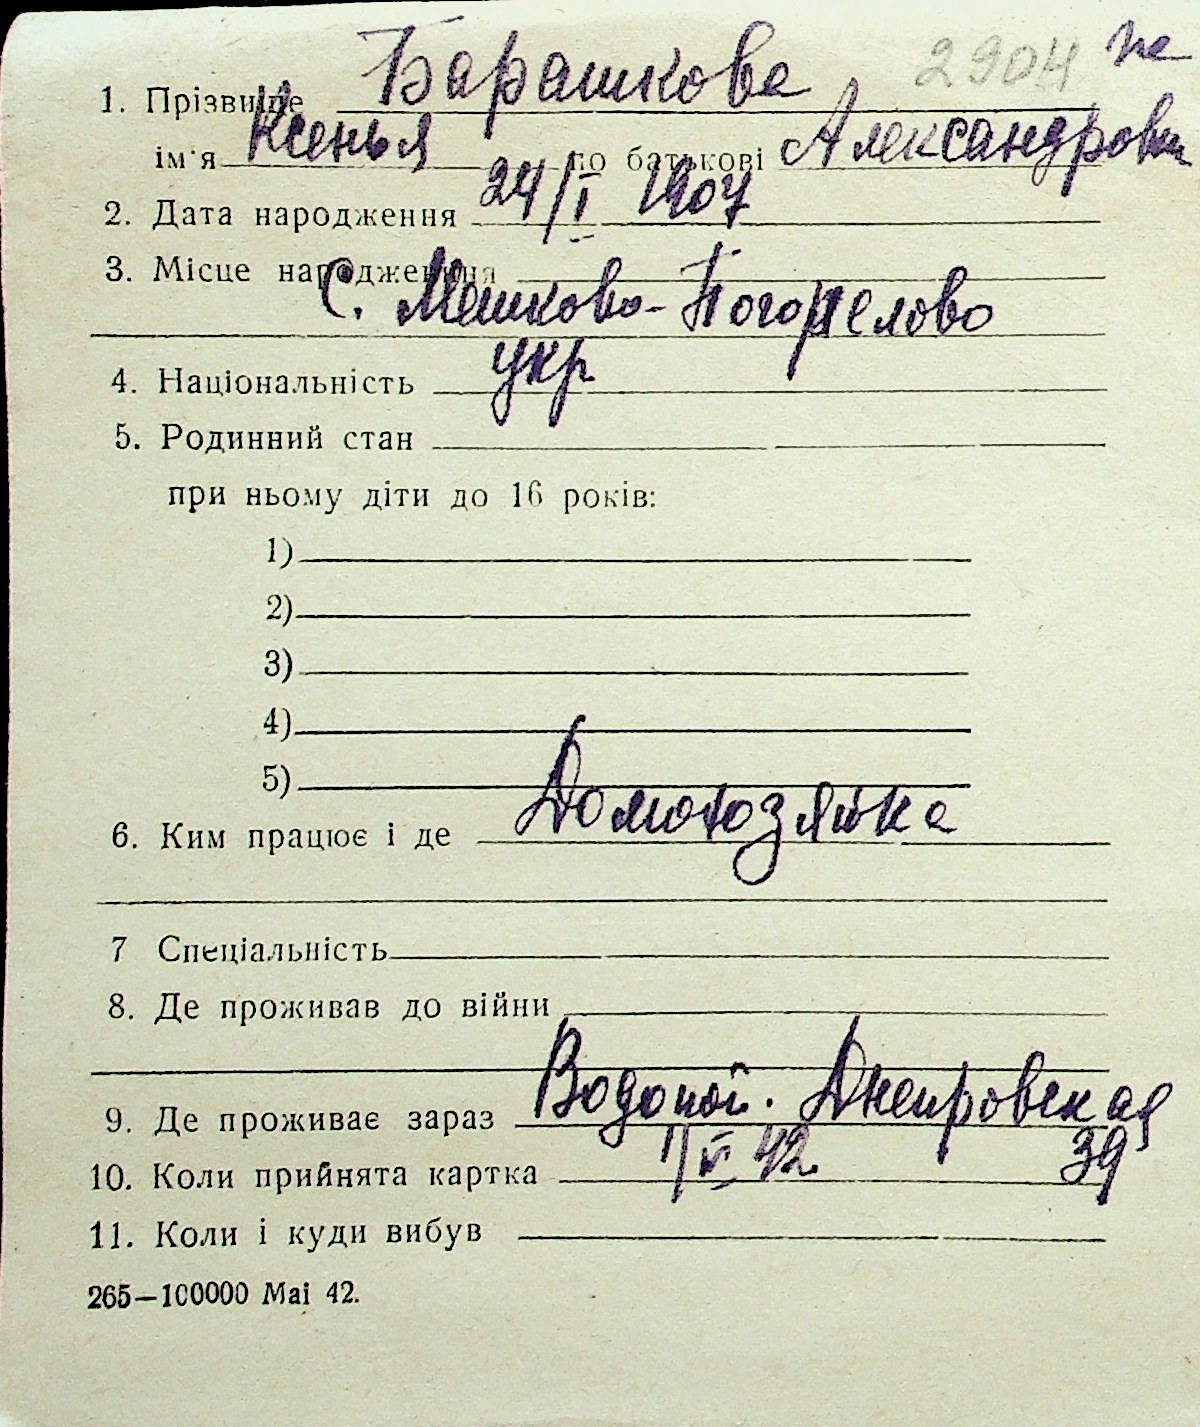 2904
1. Прізвище Барашкова
ім'я Ксенья по батькові Александровн
2. Дата народження 24/I 1907
3. Місце народження
С. Мешково-Погорелово
4. Національність укр
5. Родинний стан
при ньому діти до 16 років:
1)
2)
3)
4)
5)
6. Ким працює і де Домохозяйка
7 Спеціальність
8. Де проживав до війни
9. Де проживає зараз Водопой. Днепровская
39
10. Коли прийнята картка 1/VI 42
11. Коли і куди вибув
265—100000 Маі 42.